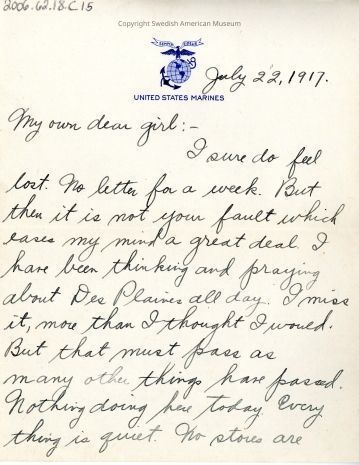 2006.62.18.C.15
Copyright Swedish American Museum
SEMPER FIDELIS
UNITED STATES MARINES
July 22, 1917.
My own dear girl:-
I sure do feel
lost. No letter for a week. But
then it is not your fault which
eases my mind a great deal. I
have been thinking and praying
about Des Plaines all day. I miss
it, more than I thought I would.
But that must pass as
many other things have passed.
Nothing doing here today. Every
thing is quiet. No stores are